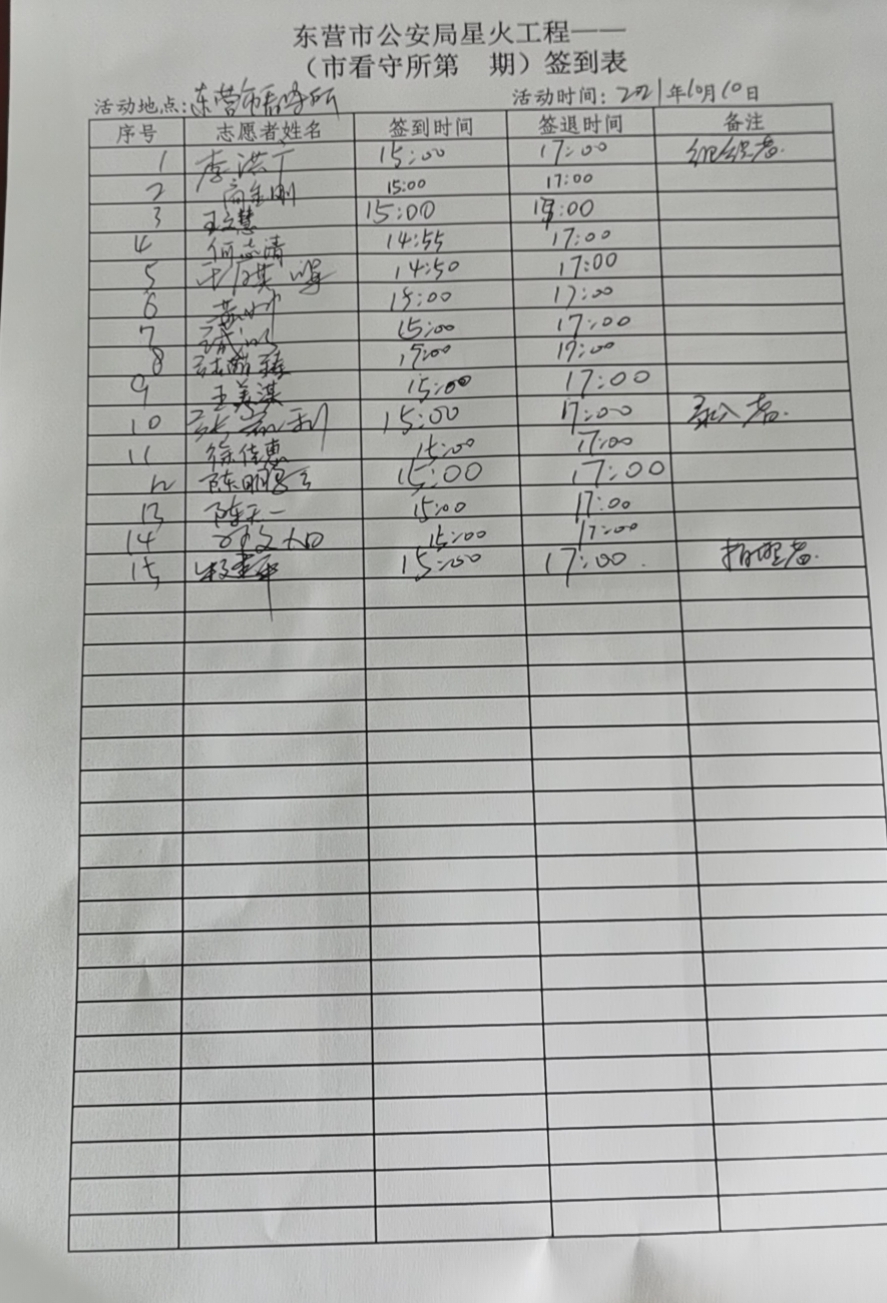 东营市公安局星火工程——
（市看守所第 期）签到表
活动地点：东营市看守所 活动时间：2021年10月10日
序号 志愿者姓名 签到时间 签退时间 备注
1 李洪丁 15:00 17:00 组织者.
2 高金刚 15:00 17:00
3 王文慧 15:00 17:00
4 何志清 14:55 17:00
5 14:50 17:00
6 15:00 17:00
7 15:00 17:00
8 15:00 17:00
9 王美淇 15:00 17:00
10 15:00 17:00 录入者.
11 徐佳惠 15:00 17:00
12 15:00 17:00
13 陈天一 15:00 17:00
14 15:00 17:00
15 15:00 17:00.